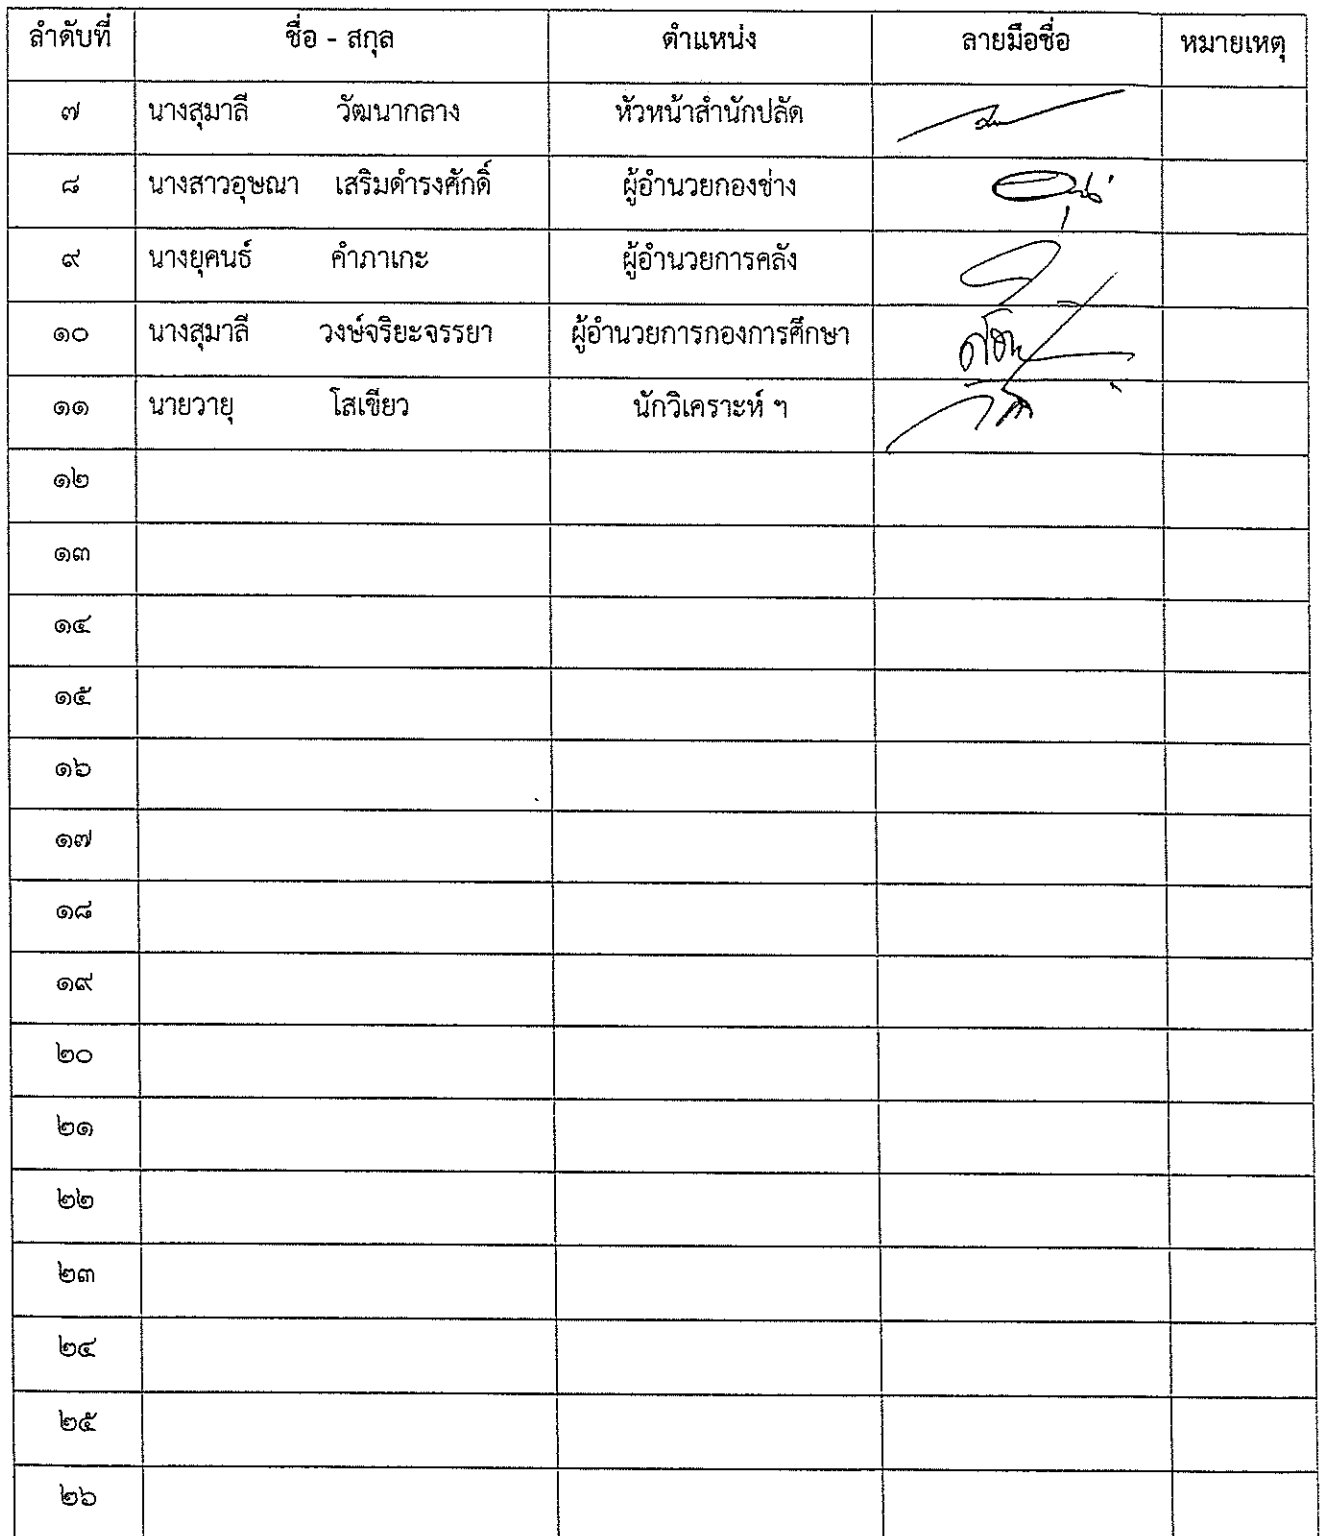 ลำดับที่ ชื่อ - สกุล ตำแหน่ง ลายมือชื่อ หมายเหตุ
๗ นางสุมาลี วัฒนากลาง หัวหน้าสำนักปลัด
๘ นางสาวอุษณา เสริมดำรงศักดิ์ ผู้อำนวยกองช่าง
๙ นางยุคนธ์ คำภาเกะ ผู้อำนวยการคลัง
๑๐ นางสุมาลี วงษ์จริยะจรรยา ผู้อำนวยการกองการศึกษา
๑๑ นายวายุ โสเขียว นักวิเคราะห์ ฯ
๑๒
๑๓
๑๔
๑๕
๑๖
๑๗
๑๘
๑๙
๒๐
๒๑
๒๒
๒๓
๒๔
๒๕
๒๖